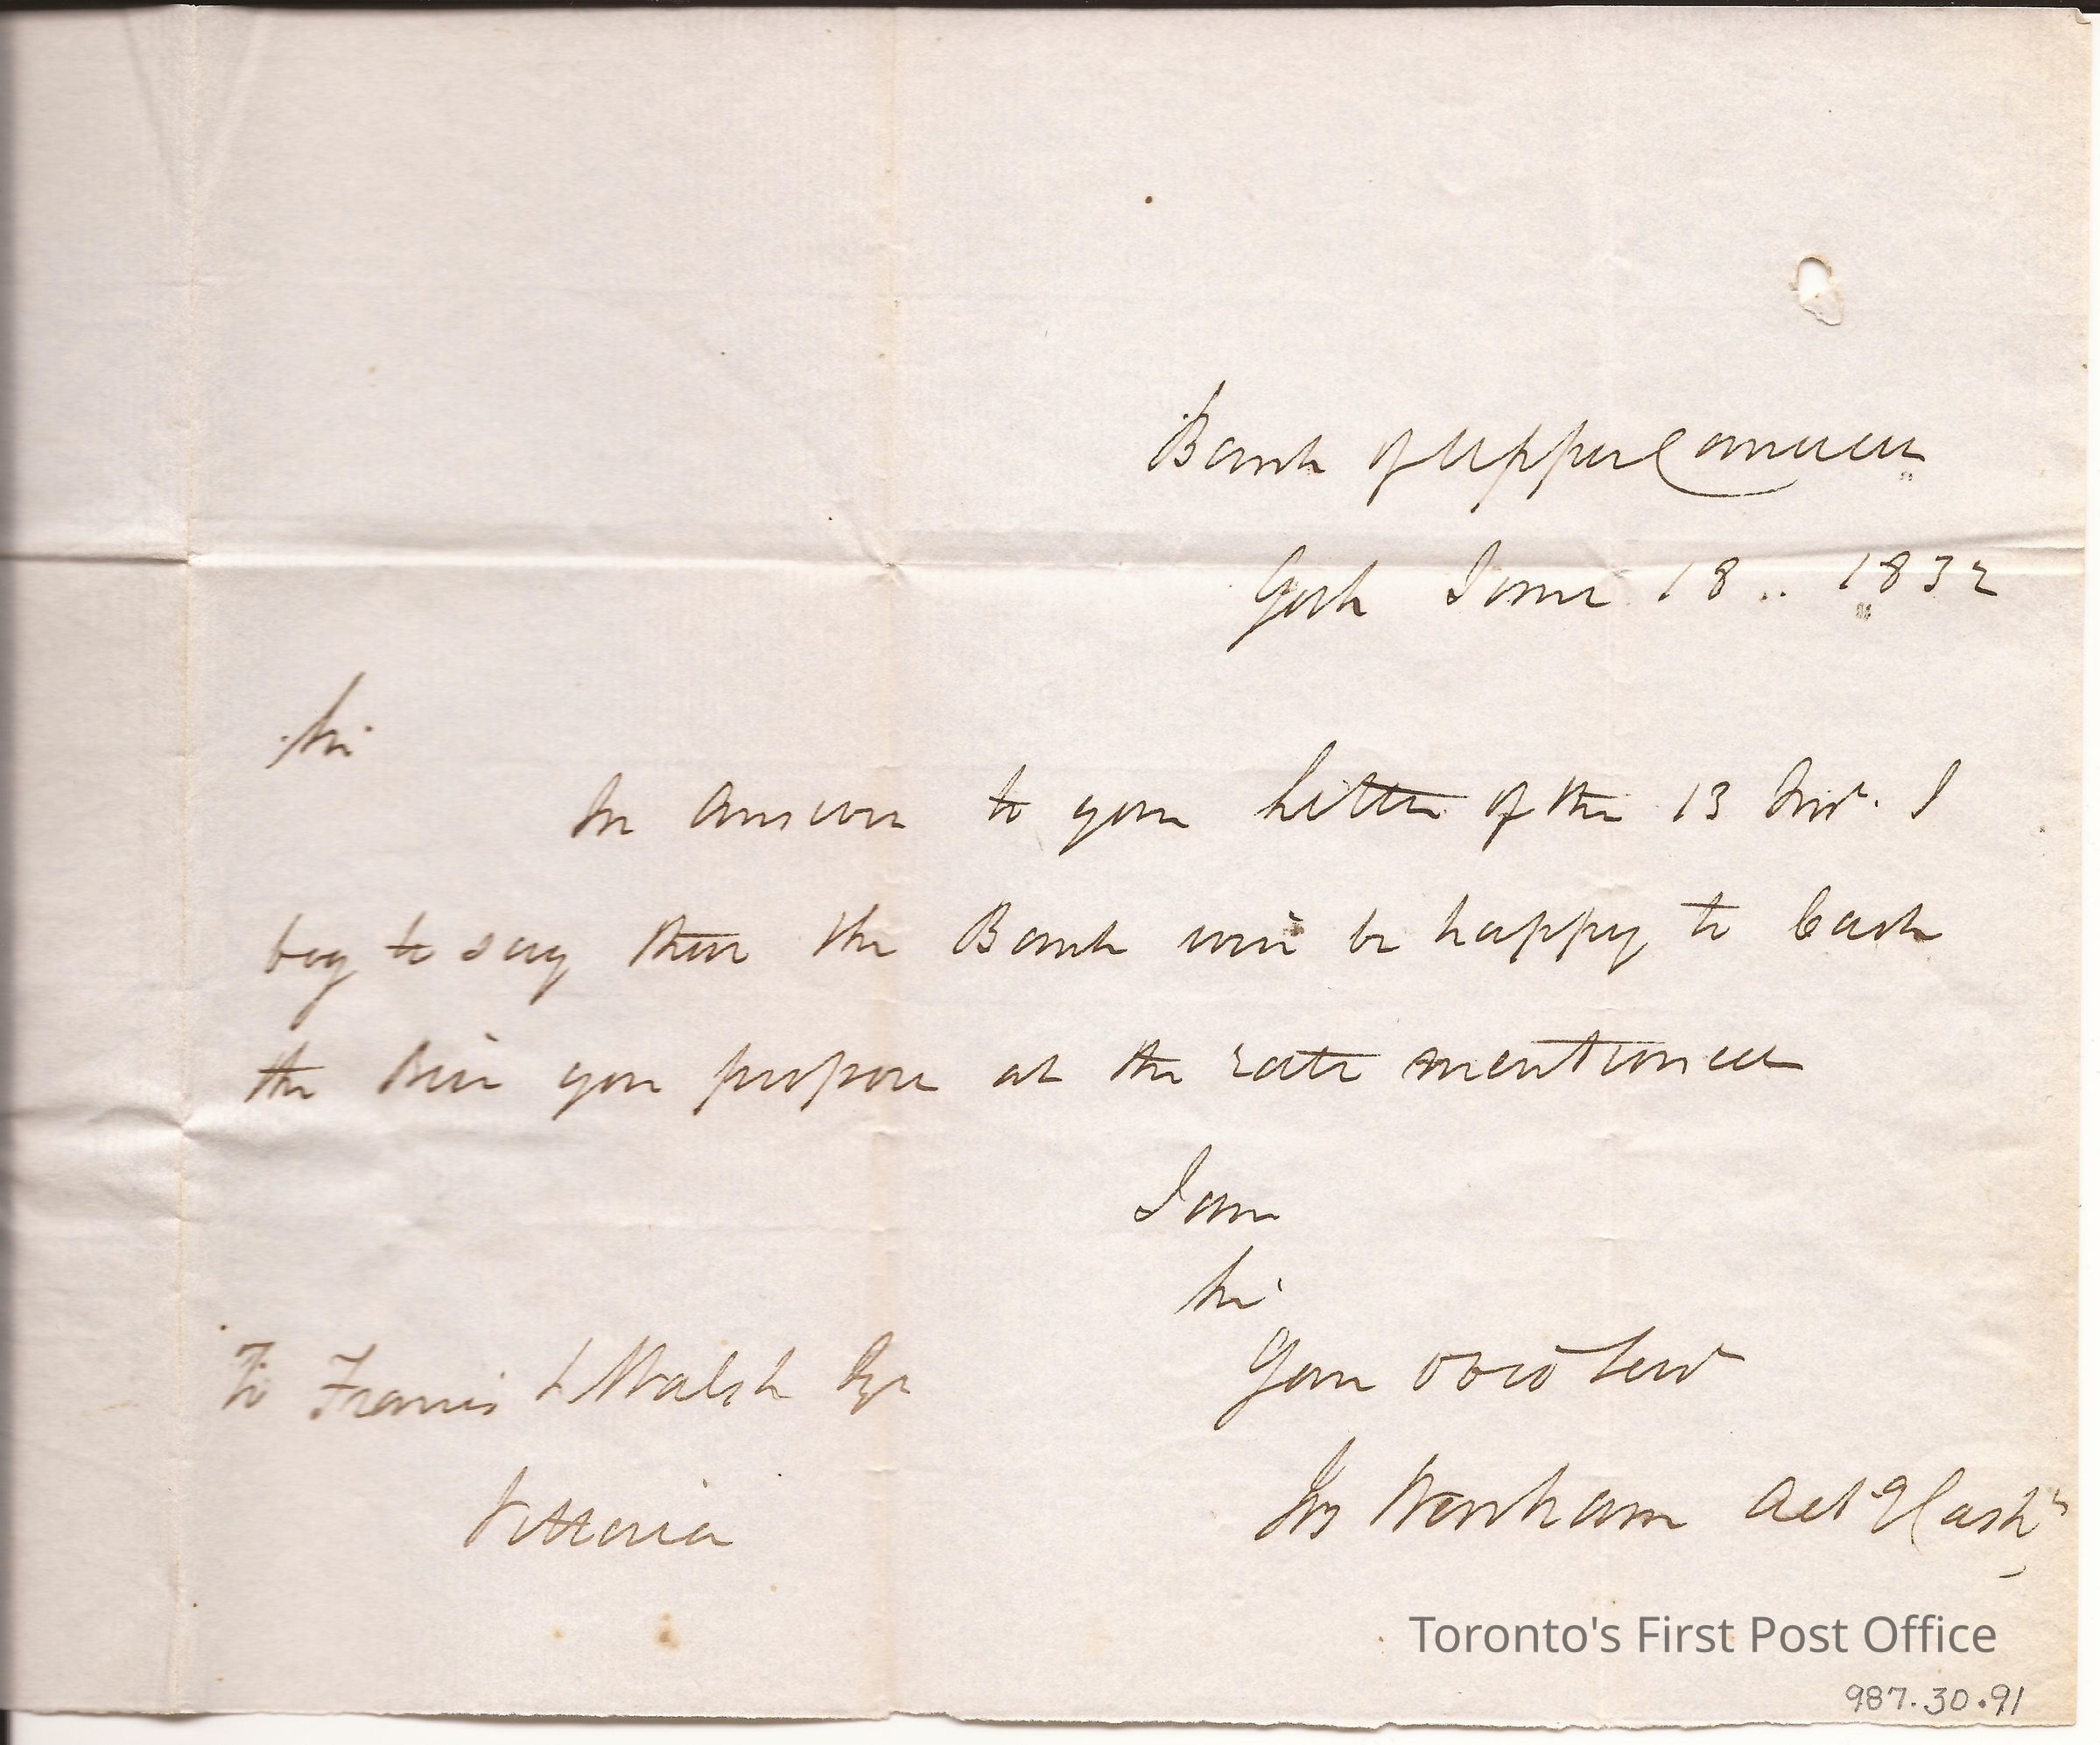 Bank of Upper Canada
York June 18 .. 1832
Sir
In Answer to your Letter of the 13 Inst. I
beg to say that the Bank will be happy to Cash
the Bill you propose at the rate mentioned
I am
Sir
Your Obed Servt
Jos Wenham Actg Cashr
To Francis L Walsh Esqr
Vittoria
Toronto's First Post Office
987.30.91